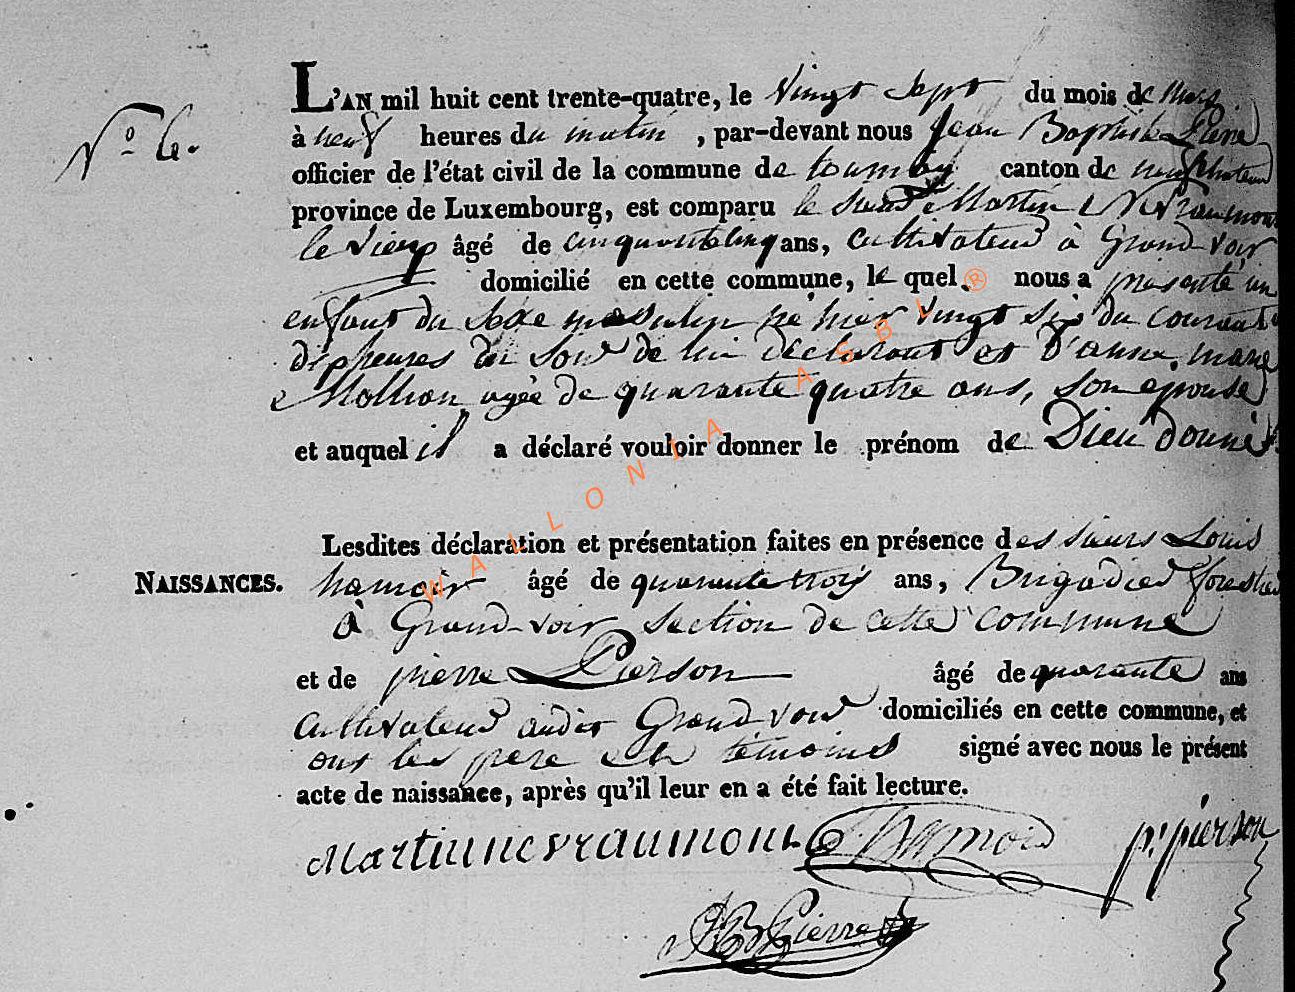 N° 6.
L'AN mil huit cent trente-quatre, le Vingt Sept du mois de Mars
à neuf heures du matin, par-devant nous Jean Baptiste Pierre
officier de l'état civil de la commune de tournay canton de neufchateau
province de Luxembourg, est comparu le sieur Martin Nevraumont
le Vieux âgé de cinquante cinq ans, Cultivateur à Grand voir
domicilié en cette commune, le quel nous a présenté un
enfant du Sexe masculin né hier vingt six du courant
dix heures du Soir de lui déclarant et d'anne marie
Mollion agée de quarante quatre ans, son épouse
et auquel il a déclaré vouloir donner le prénom de Dieu donné.
Lesdites déclaration et présentation faites en présence des sieurs Louis
NAISSANCES.
hamoir âgé de quarante trois ans, Brigadier forestier
à Grand-voir section de cette commune
et de pierre Pierson âgé de quarante ans
Cultivateur audit Grand voir domiciliés en cette commune, et
ont les pere et témoins signé avec nous le présent
acte de naissance, après qu'il leur en a été fait lecture.
Martin nevraumont L. Hamoir p. pierson
JB Pierre
WALLONIA ASBL ®